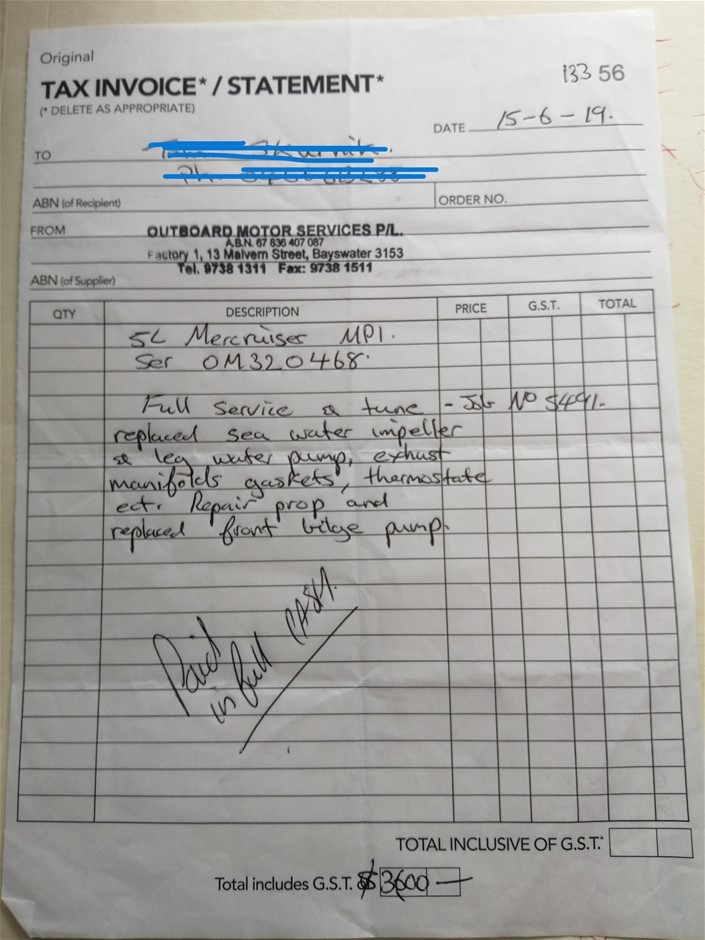 Original
TAX INVOICE* / STATEMENT*
(* DELETE AS APPROPRIATE)
133 56
DATE 15-6-19.
TO
ABN (of Recipient)
ORDER NO.
FROM
OUTBOARD MOTOR SERVICES P/L.
A.B.N. 67 836 407 087
Factory 1, 13 Malvern Street, Bayswater 3153
Tel. 9738 1311 Fax: 9738 1511
ABN (of Supplier)
QTY DESCRIPTION PRICE G.S.T. TOTAL
5L Mercruiser MPI.
Ser 0M320468.
Full service & tune - Job No 5491.
replaced sea water impeller
& leg water pump, exhust
manifolds gaskets, thermostate
ect. Repair prop and
replaced front bilge pump.
Paid
in full CASH.
TOTAL INCLUSIVE OF G.S.T.*
Total includes G.S.T. of $3600 —